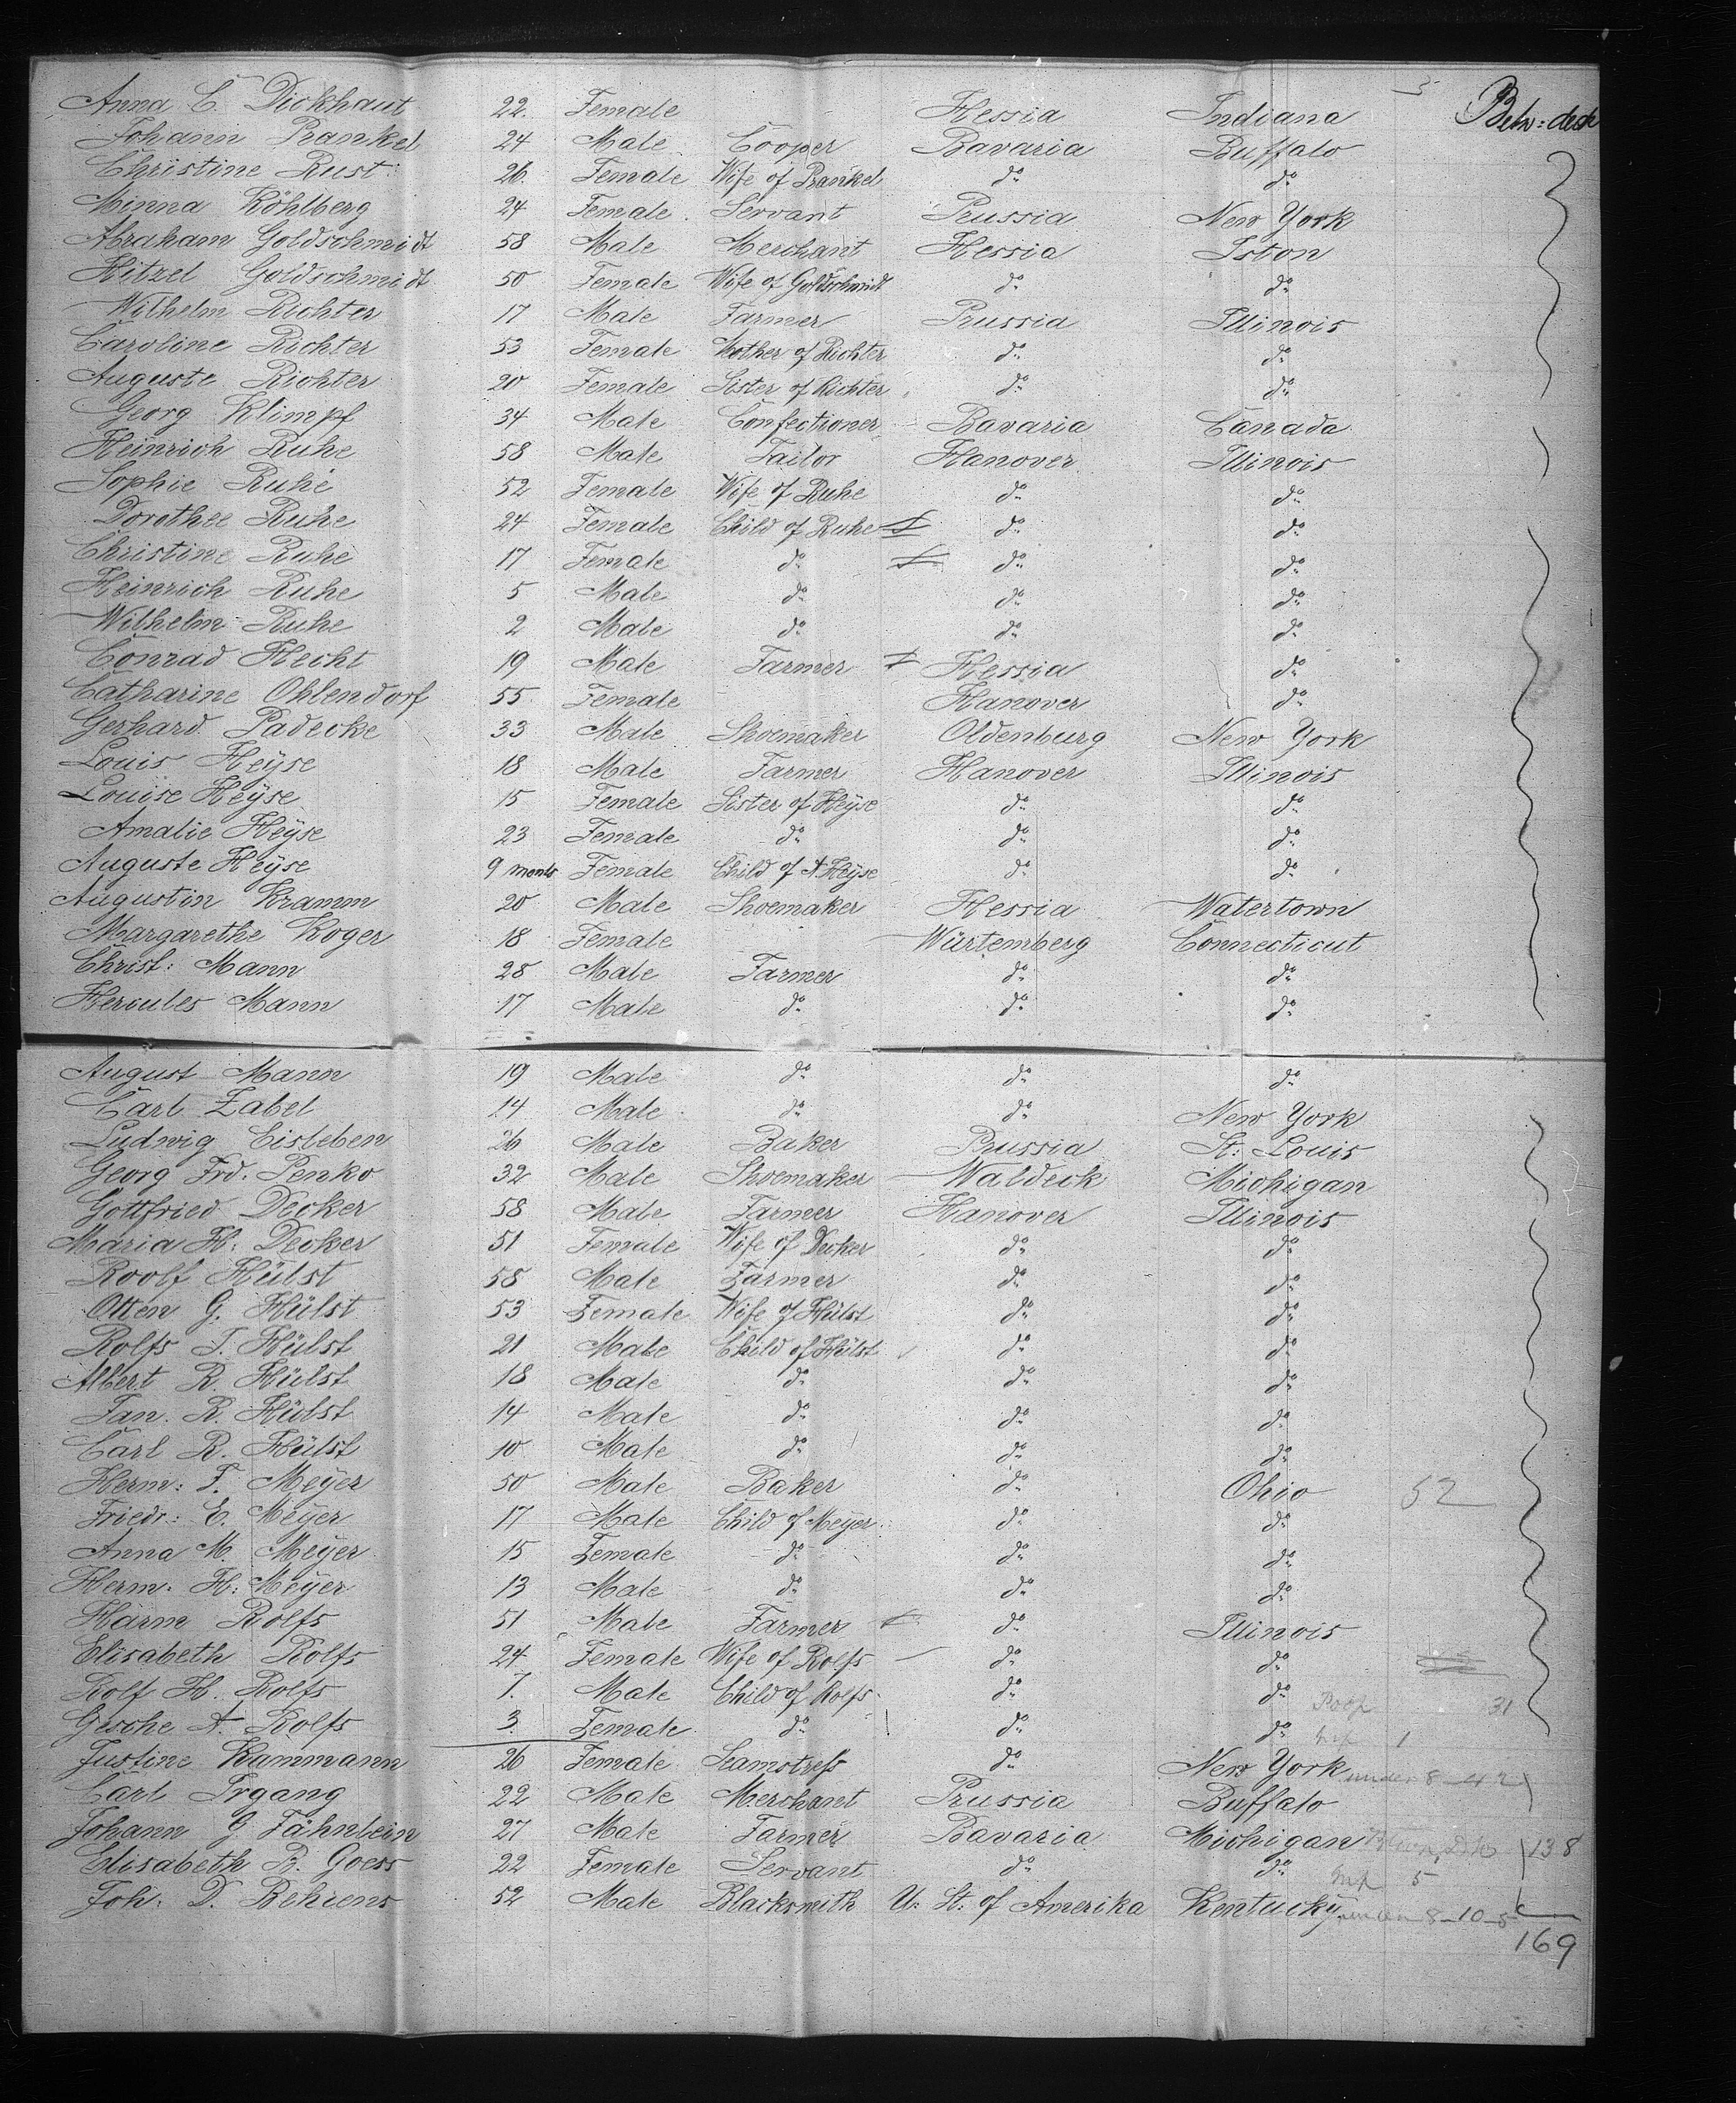 Anna C. Dickhaut 22. Female Hessia Indiana Betw: deck
Johann Prankel 24 Male Cooper Bavaria Buffalo
Christine Rust 26. Female Wife of Prankel do do
Minna Köhlberg 24 Female Servant Prussia New York
Abraham Goldschmidt 58 Male Merchant Hessia Iston
Hitzel Goldschmidt 50 Female Wife of Goldschmidt do do
Wilhelm Richter 17 Male Farmer Prussia Illinois
Caroline Richter 53 Female Mother of Richter do do
Auguste Richter 20 Female Sister of Richter do do
Georg Klimpf 34 Male Confectioner Bavaria Canada
Heinrich Ruhe 58 Male Tailor Hanover Illinois
Sophie Ruhe 52 Female Wife of Ruhe do do
Dorothee Ruhe 24 Female Child of Ruhe do do
Christine Ruhe 17 Female do do do
Heinrich Ruhe 5 Male do do do
Wilhelm Ruhe 2 Male do do do
Conrad Hecht 19 Male Farmer Hessia do
Catharine Ohlendorf 55 Female Hanover do
Gerhard Padecke 33 Male Shoemaker Oldenburg New York
Louis Heÿse 18 Male Farmer Hanover Illinois
Louise Heÿse 15 Female Sister of Heÿse do do
Amalie Heÿse 23 Female do do do
Auguste Heÿse 9 monts Female Child of A. Heÿse do do
Augustin Kramm 20 Male Shoemaker Hessia Watertown
Margarethe Koger 18 Female Würtemberg Connecticut
Christ: Mann 28 Male Farmer do do
Hercules Mann 17 Male do do do
August Mann 19 Male do do do
Carl Zabel 14 Male do do New York
Ludwig Eisleben 26 Male Baker Prussia St: Louis
Georg Frd. Penko 32 Male Shoemaker Waldeck Michigan
Gottfried Decker 58 Male Farmer Hanover Illinois
Maria H: Decker 51 Female Wife of Decker do do
Roolf Hülst 58 Male Farmer do do
Otten G. Hülst 53 Female Wife of Hülst do do
Rolfs J. Hülst 21 Male Child of Hülst do do
Albert R. Hülst 18 Male do do do
Jan. R. Hülst 14 Male do do do
Carl R. Hülst 10 Male do do do
Herm: F. Meÿer 50 Male Baker do Ohio 52
Friedr: E. Meÿer 17 Male Child of Meÿer do do
Anna M. Meÿer 15 Female do do do
Herm: H: Meÿer 13 Male do do do
Harm Rolfs 51 Male Farmer do Illinois
Elisabeth Rolfs 24 Female Wife of Rolfs do do
Rolf H. Rolfs 7. Male Child of Rolfs do do 31
Gesche A. Rolfs 3. Female do do do 1
Justine Kammann 26 Female Seamstress do New York under 8
Carl Irgang 22 Male Merchant Prussia Buffalo
Johann G Fähnlein 27 Male Farmer Bavaria Michigan 138
Elisabeth B. Goess 22 Female Servant do do Inf 5
Joh: D. Behrens 52 Male Blacksmith U: St: of Amerika Kentucky under 8 - 10 - 5
169